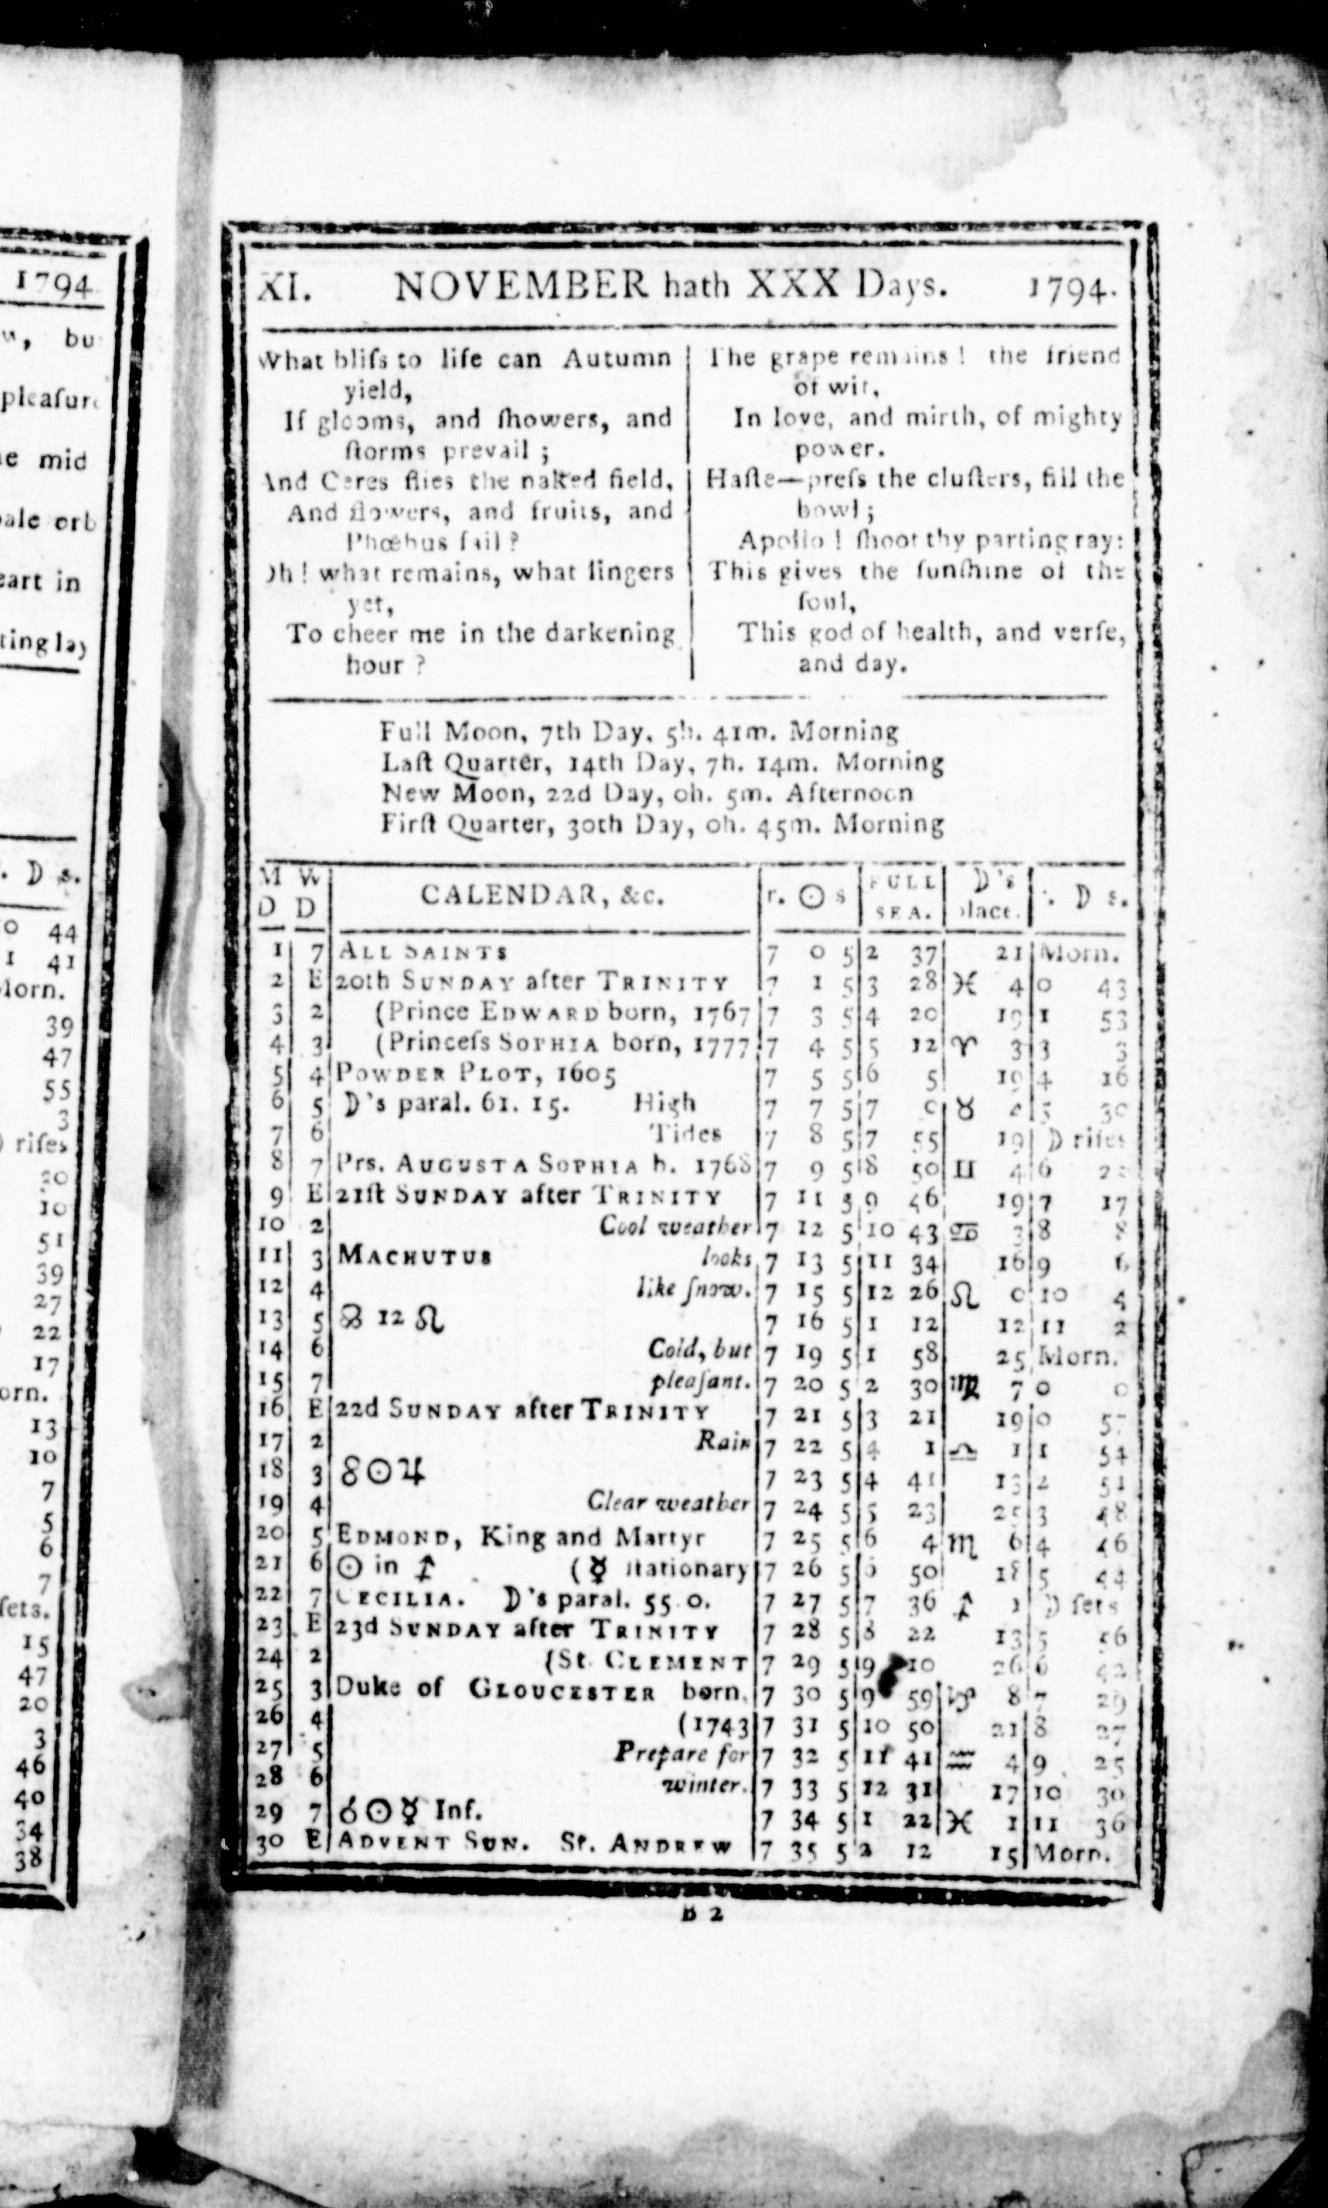 1794
bu
pleasure
mid
pale orb
heart in
ting lay
☽ s.
44
1 41
Morn.
39
47
55
3
☽ rises
20
10
51
39
27
22
17
Morn.
13
10
7
5
6
7
sets.
15
47
20
3
46
40
34
38
XI. NOVEMBER hath XXX Days. 1794.
What bliſs to life can Autumn
yield,
If glooms, and ſhowers, and
ſtorms prevail ;
And Ceres flies the naked field,
And flowers, and fruits, and
Phœbus fail ?
Oh ! what remains, what lingers
yet,
To cheer me in the darkening
hour ?
The grape remains ! the friend
of wit,
In love, and mirth, of mighty
power.
Haſte—preſs the cluſters, fill the
bowl ;
Apollo ! ſhoot thy parting ray:
This gives the ſunſhine of the
ſoul,
This god of health, and verſe,
and day.
Full Moon, 7th Day, 5h. 41m. Morning
Laſt Quarter, 14th Day, 7h. 14m. Morning
New Moon, 22d Day, 0h. 5m. Afternoon
Firſt Quarter, 30th Day, 0h. 45m. Morning
M W CALENDAR, &c. r. ☉ s FULL ☽'s ☽ s.
D D SEA. place.
1 7 ALL SAINTS 7 0 5 2 37 21 Morn.
2 E 20th SUNDAY after TRINITY 7 1 5 3 28 ♓ 4 0 43
3 2 (Prince EDWARD born, 1767 7 3 5 4 20 19 1 53
4 3 (Princeſs SOPHIA born, 1777 7 4 5 5 12 ♈ 3 3 3
5 4 POWDER PLOT, 1605 7 5 5 6 5 19 4 16
6 5 ☽'s paral. 61. 15. High 7 7 5 7 0 ♉ 4 5 30
7 6 Tides 7 8 5 7 55 19 ☽ riſes
8 7 Prs. AUGUSTA SOPHIA b. 1768 7 9 5 8 50 ♊ 4 6
9 E 21ſt SUNDAY after TRINITY 7 11 5 9 46 19 7 17
10 2 Cool weather 7 12 5 10 43 ♋ 3 8 8
11 3 MACHUTUS looks 7 13 5 11 34 16 9 6
12 4 like ſnow. 7 15 5 12 26 ♌ 0 10 4
13 5 ☊ 12 ♌ 7 16 5 1 12 12 11 2
14 6 Cold, but 7 19 5 1 58 25 Morn.
15 7 pleaſant. 7 20 5 2 30 ♍ 7 0 0
16 E 22d SUNDAY after TRINITY 7 21 5 3 21 19 0 57
17 2 Rain 7 22 5 4 1 ♎ 1 1 54
18 3 ☍ ☉ ♃ 7 23 5 4 41 13 2 51
19 4 Clear weather 7 24 5 5 23 25 3 48
20 5 EDMOND, King and Martyr 7 25 5 6 4 ♏ 6 4 46
21 6 ☉ in ♐ (☿ ſtationary 7 26 5 6 50 18 5 44
22 7 CECILIA. ☽'s paral. 55 0. 7 27 5 7 36 ♐ 1 ☽ ſets
23 E 23d SUNDAY after TRINITY 7 28 5 8 22 13 5 56
24 2 (St. CLEMENT 7 29 5 9 10 26 6 42
25 3 Duke of GLOUCESTER born, 7 30 5 9 59 ♑ 8 7 29
26 4 (1743 7 31 5 10 50 21 8 27
27 5 Prepare for 7 32 5 11 41 ♒ 4 9 25
28 6 winter. 7 33 5 12 31 17 10 30
29 7 ☌ ☉ ☿ Inf. 7 34 5 1 22 ♓ 1 11 36
30 E ADVENT SUN. St. ANDREW 7 35 5 2 12 15 Morn.
B 2